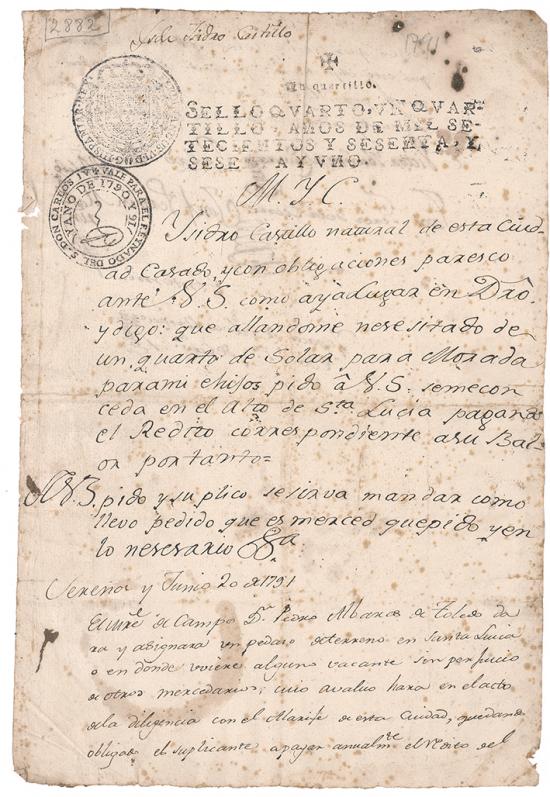 2882
Sole Isidro Castillo
1791
Un quartillo.
SELLO QVARTO, VN QVAR-
TILLO, AÑOS DE MIL SE-
TECIENTOS Y SESENTA, Y
SESENTA Y VNO.
VALE PARA EL REYNADO DEL S. DON CARLOS IV
Y AÑO DE 1790. Y 91
M. Y C.
Ysidro Castillo natural de esta Ciud-
ad Casado, y con obligaciones paresco
ante V.S. como aya Lugar en Dro
y digo: que allandome nesesitado de
un quarto de Solar para Morada
para mi e hijos pido â V.S. se me con
ceda en el Alto de Sta Lucia pagando
el Redito correspondiente a su Bal-
or por tanto=
A V.S. pido y suplico se sirva mandar como
llevo pedido que es merced que pido y en
lo nesesario &a
Serena y Junio 20 de 1791
El Mre de Campo Dn Pedro Albares de Toledo da
ra y asignara un pedaso de terreno en Santa Lucia
o en donde uviere alguno vacante sin perjuicio
de otros mercedarios, cuio avaluo hara en el acto
de la diligencia con el Alarife de esta Ciudad, quedando
obligado el suplicante a pagar anualmte el Redito del